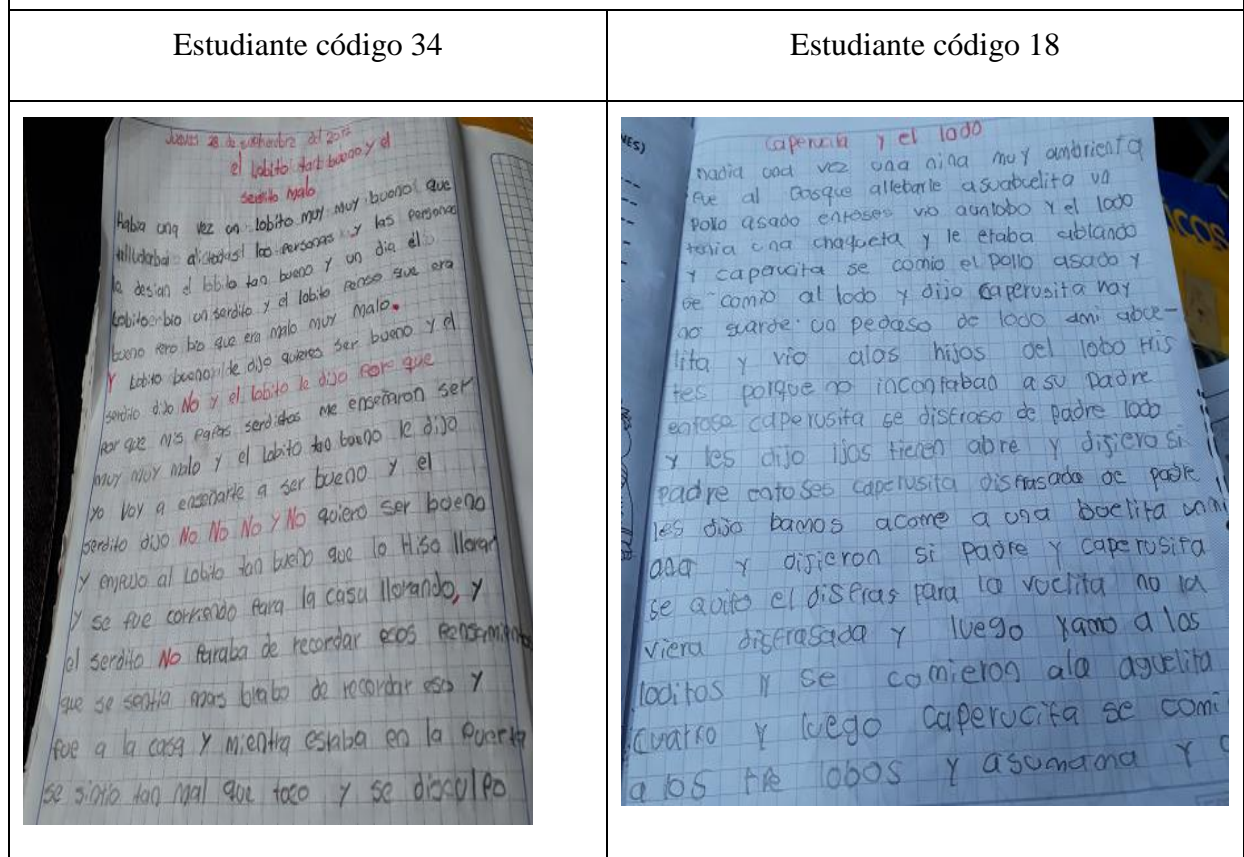 Estudiante código 34
Estudiante código 18
Jueves 28 de del
el lobito tan bueno y el
serdito malo
Habia una vez un lobito muy muy bueno que
las personas y las personas
le desian el lobito tan bueno y un dia el
lobito bio un serdito y el lobito penso que era
bueno pero bio que era malo muy malo.
Y Lobito bueno le dijo quieres ser bueno y el
serdito dijo No y el lobito le dijo Por que
por que mis papas serditos me enseñaron ser
muy muy malo y el lobito tan bueno le dijo
yo voy a enseñarle a ser bueno y el
serdito dijo No No No y No quiero ser bueno
y empujo al lobito tan bueno que lo Hiso llorar
y se fue corriendo para la casa llorando, y
el serdito No paraba de recordar esos
que se sentia mas brabo de recordar eso y
fue a la casa y mientra estaba en la puerta
se sintio tan mal que toco y se disculpo
y el lodo
vez una nina muy ambrienta
fue al bosque allebarle asuabuelita un
pollo asado entoses vio aunlobo y el lodo
tenia una chaqueta y le etaba ablando
y se comio el pollo asado y
se comio al lodo y dijo caperusita voy
ao guarde un pedaso de lodo ami abue-
lita y vio alos hijos del lobo tris
tes porque no incontaban a su padre
entose caperusita se disfraso de padre lodo
y les dijo ijos tienen abre y dijiero si
padre entoses caperusita disfrasada de padre
les dijo bamos acome a una buelita
y dijieron si padre y caperusita
se quito el disfras para la vuelita no la
viera disfrasada y luego yamo a los
loditos y se comieron ala aguelita
cuatro y luego caperucita se comi
a los tre lobos y asumama y